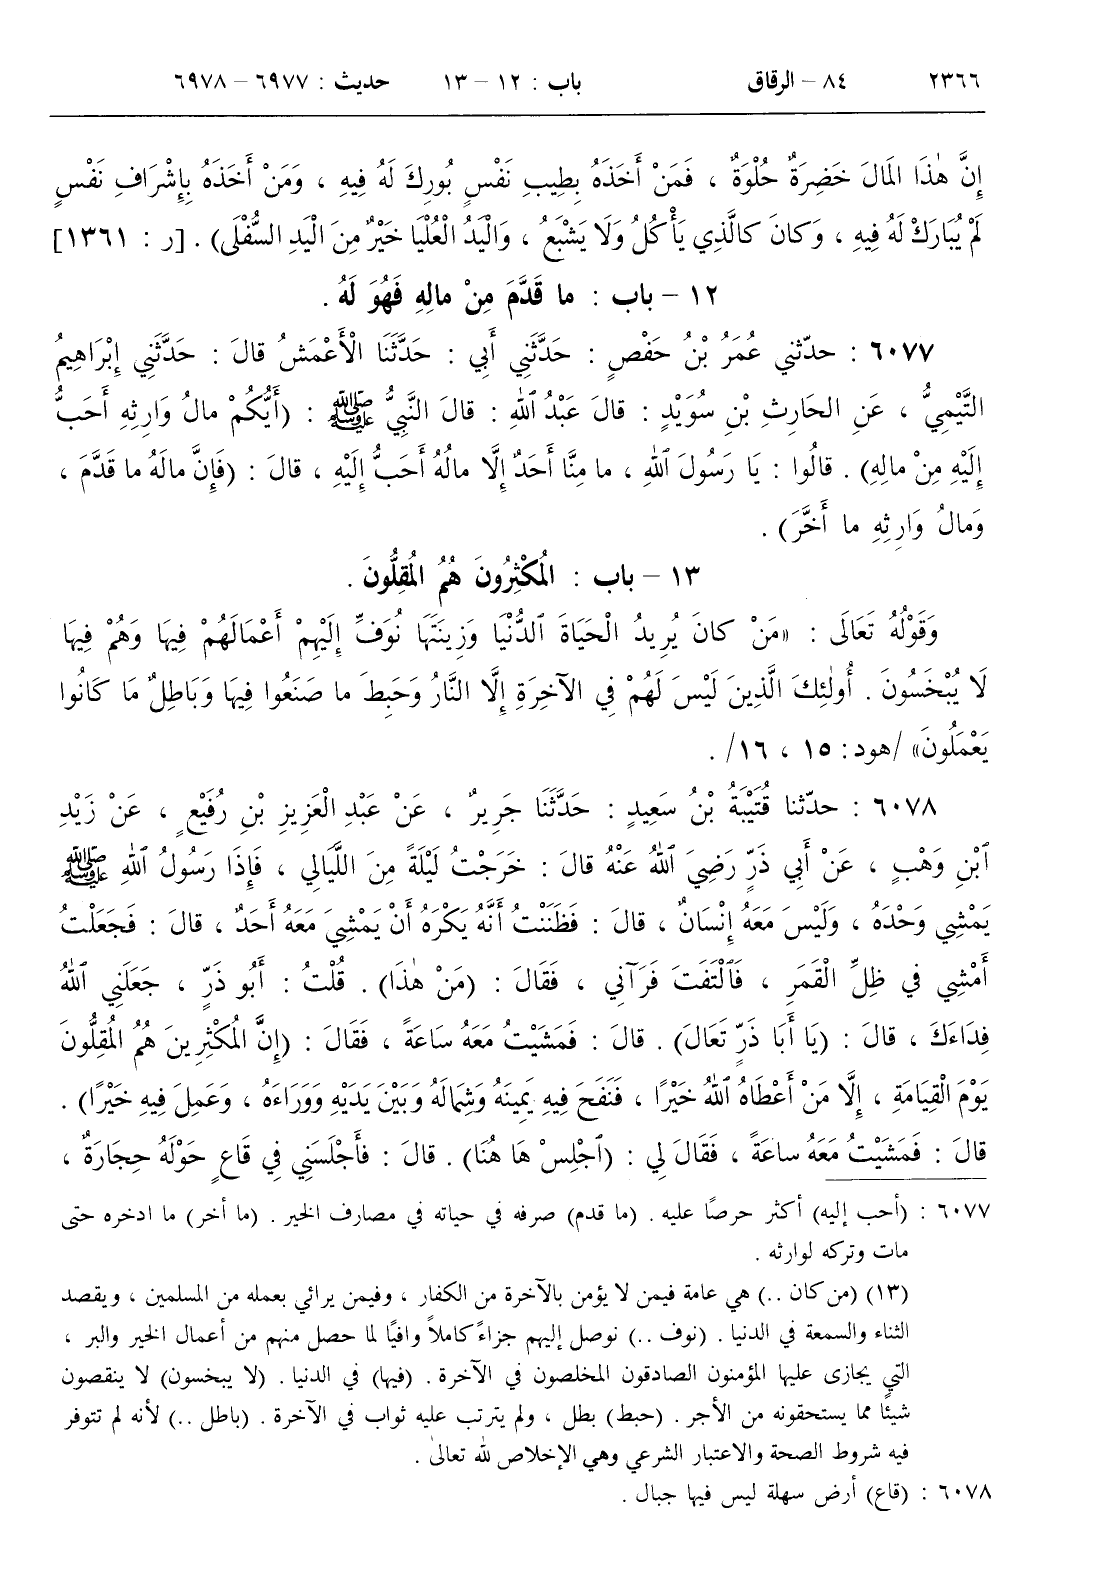 ٢٣٦٦ ٨٤ – الرقاق باب : ١٢ – ١٣ حديث : ٦٩٧٧ – ٦٩٧٨
إِنَّ هٰذَا المَالَ خَضِرَةٌ حُلْوَةٌ ، فَمَنْ أَخَذَهُ بِطِيبِ نَفْسٍ بُورِكَ لَهُ فِيهِ ، وَمَنْ أَخَذَهُ بِإِشْرَافِ نَفْسٍ
لَمْ يُبَارَكْ لَهُ فِيهِ ، وَكانَ كالَّذِي يَأْكُلُ وَلَا يَشْبَعُ ، وَالْيَدُ الْعُلْيَا خَيْرٌ مِنَ الْيَدِ السُّفْلَى) . [ر : ١٣٦١]
١٢ – باب : ما قَدَّمَ مِنْ مالِهِ فَهُوَ لَهُ .
٦٠٧٧ : حدّثني عُمَرُ بْنُ حَفْصٍ : حَدَّثَنِي أَبِي : حَدَّثَنَا الْأَعْمَشُ قالَ : حَدَّثَنِي إِبْرَاهِيمُ
التَّيْمِيُّ ، عَنِ الحَارِثِ بْنِ سُوَيْدٍ : قالَ عَبْدُ ٱللهِ : قالَ النَّبِيُّ ﷺ : (أَيُّكُمْ مالُ وَارِثِهِ أَحَبُّ
إِلَيْهِ مِنْ مالِهِ) . قالُوا : يَا رَسُولَ ٱللهِ ، ما مِنَّا أَحَدٌ إِلَّا مالُهُ أَحَبُّ إِلَيْهِ ، قالَ : (فَإِنَّ مالَهُ ما قَدَّمَ ،
وَمالُ وَارِثِهِ ما أَخَّرَ) .
١٣ – باب : المُكْثِرُونَ هُمُ المُقِلُّونَ .
وَقَوْلُهُ تَعَالَى : «مَنْ كانَ يُرِيدُ الْحَيَاةَ ٱلدُّنْيَا وَزِينَتَهَا نُوَفِّ إِلَيْهِمْ أَعْمَالَهُمْ فِيهَا وَهُمْ فِيهَا
لَا يُبْخَسُونَ . أُولٰئِكَ الَّذِينَ لَيْسَ لَهُمْ فِي الآخِرَةِ إِلَّا النَّارُ وَحَبِطَ ما صَنَعُوا فِيهَا وَبَاطِلٌ مَا كَانُوا
يَعْمَلُونَ» /هود : ١٥ ، ١٦/ .
٦٠٧٨ : حدّثنا قُتَيْبَةُ بْنُ سَعِيدٍ : حَدَّثَنَا جَرِيرٌ ، عَنْ عَبْدِ الْعَزِيزِ بْنِ رُفَيْعٍ ، عَنْ زَيْدِ
ٱبْنِ وَهْبٍ ، عَنْ أَبِي ذَرٍّ رَضِيَ ٱللهُ عَنْهُ قالَ : خَرَجْتُ لَيْلَةً مِنَ اللَّيَالِي ، فَإِذَا رَسُولُ ٱللهِ ﷺ
يَمْشِي وَحْدَهُ ، وَلَيْسَ مَعَهُ إِنْسَانٌ ، قالَ : فَظَنَنْتُ أَنَّهُ يَكْرَهُ أَنْ يَمْشِيَ مَعَهُ أَحَدٌ ، قالَ : فَجَعَلْتُ
أَمْشِي في ظِلِّ الْقَمَرِ ، فَٱلْتَفَتَ فَرَآنِي ، فَقَالَ : (مَنْ هٰذَا) . قُلْتُ : أَبُو ذَرٍّ ، جَعَلَنِي ٱللهُ
فِدَاءَكَ ، قالَ : (يَا أَبَا ذَرٍّ تَعَالَ) . قالَ : فَمَشَيْتُ مَعَهُ سَاعَةً ، فَقَالَ : (إِنَّ المُكْثِرِينَ هُمُ المُقِلُّونَ
يَوْمَ الْقِيَامَةِ ، إِلَّا مَنْ أَعْطَاهُ ٱللهُ خَيْرًا ، فَنَفَحَ فِيهِ يَمِينَهُ وَشِمَالَهُ وَبَيْنَ يَدَيْهِ وَوَرَاءَهُ ، وَعَمِلَ فِيهِ خَيْرًا) .
قالَ : فَمَشَيْتُ مَعَهُ ساعَةً ، فَقَالَ لِي : (ٱجْلِسْ هَا هُنَا) . قالَ : فَأَجْلَسَنِي فِي قَاعٍ حَوْلَهُ حِجَارَةٌ ،
٦٠٧٧ : (أحب إليه) أكثر حرصًا عليه . (ما قدم) صرفه في حياته في مصارف الخير . (ما أخر) ما ادخره حتى
مات وتركه لوارثه .
(١٣) (من كان ..) هي عامة فيمن لا يؤمن بالآخرة من الكفار ، وفيمن يرائي بعمله من المسلمين ، ويقصد
الثناء والسمعة في الدنيا . (نوف ..) نوصل إليهم جزاءً كاملاً وافيًا لما حصل منهم من أعمال الخير والبر ،
التي يجازى عليها المؤمنون الصادقون المخلصون في الآخرة . (فيها) في الدنيا . (لا يبخسون) لا ينقصون
شيئًا مما يستحقونه من الأجر . (حبط) بطل ، ولم يترتب عليه ثواب في الآخرة . (باطل ..) لأنه لم تتوفر
فيه شروط الصحة والاعتبار الشرعي وهي الإخلاص لله تعالىٰ .
٦٠٧٨ : (قاع) أرض سهلة ليس فيها جبال .